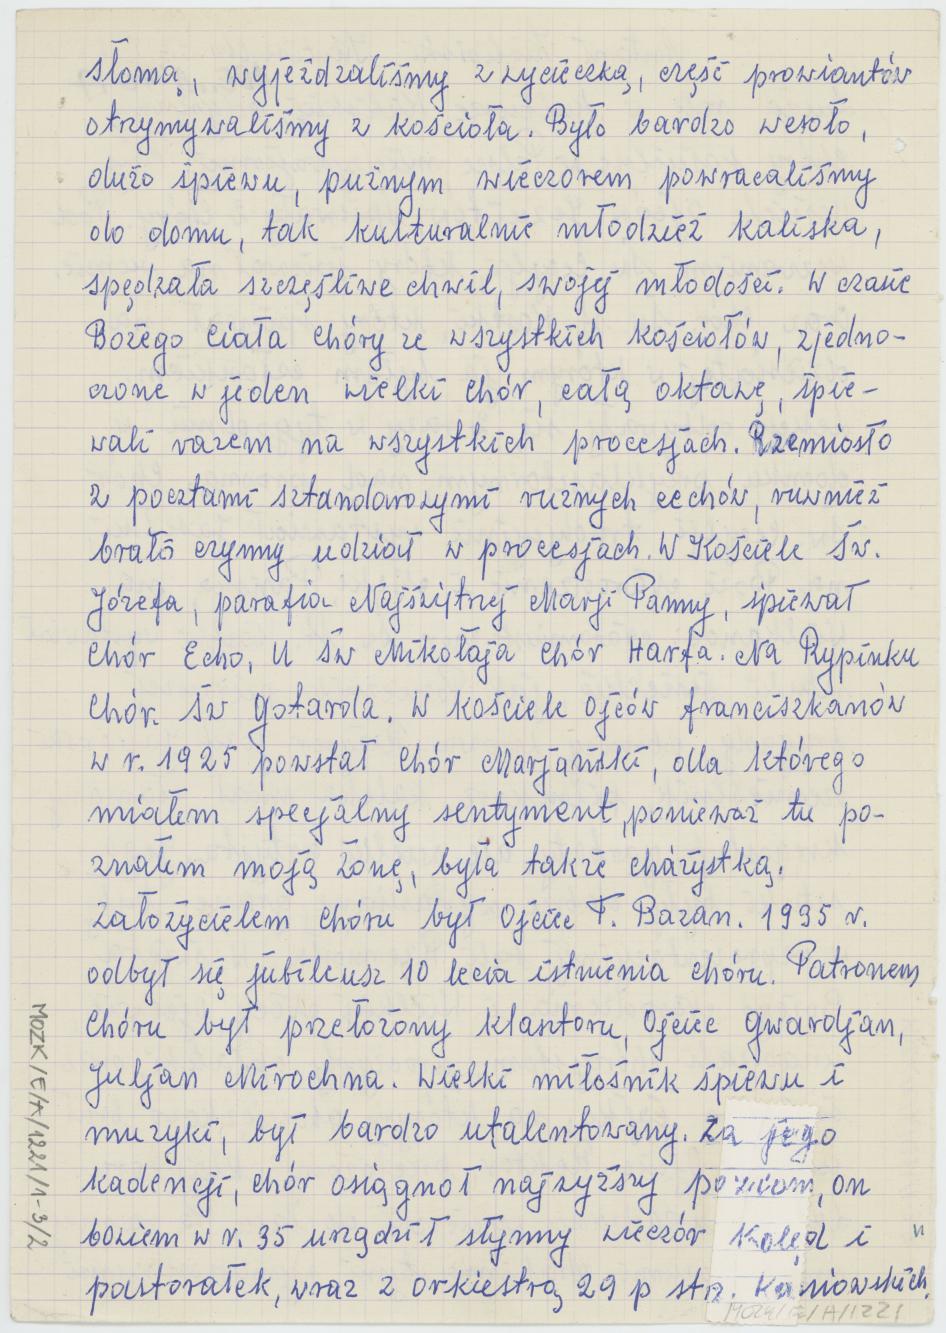 słomą, wyjeżdzaliśmy z wycieczką, część prowiantów
otrzymywaliśmy z kościoła. Było bardzo wesoło,
dużo śpiewu, puźnym wieczorem powracaliśmy
do domu, tak kulturalnie młodzież kaliska,
spędzała szczęśliwe chwil, swojej młodości. W czasie
Bożego Ciała chóry ze wszystkich kościołów, zjedno-
czone w jeden wielki chór, całą oktawę, śpie-
wali razem na wszystkich procesjach. Rzemiosło
z pocztami sztandarowymi ruźnych cechów, ruwnież
brało czynny udział w procesjach. W Kościele Św.
Józefa, parafia Najświętrzej Marji Panny, śpiewał
Chór Echo, U Św Mikołaja chór Harfa. Na Rypinku
Chór. Św Gotarda. W kościele Ojców franciszkanów
w r. 1925 powstał Chór Marjański, dla którego
miałem specjalny sentyment, ponieważ tu po-
znałem moją żonę, była także chórzystką.
Założycielem chóru był Ojciec F. Bazan. 1935 r.
odbył się jubileusz 10 lecia istnienia chóru. Patronem
Chóru był przełożony klasztoru, Ojciec Gwardjan,
Juljan Mirochna. Wielki miłośnik śpiewu i
muzyki, był bardzo utalentowany. Za jego
kadencji, chór osiągnoł najwyższy poziom, on
bowiem w r. 35 urządził słynny wieczór Kolęd i
pastorałek, wraz z orkiestrą 29 p str. Kaniowskich.
MOZK/E/A/1221/1-3/2
MOZK/E/A/1221